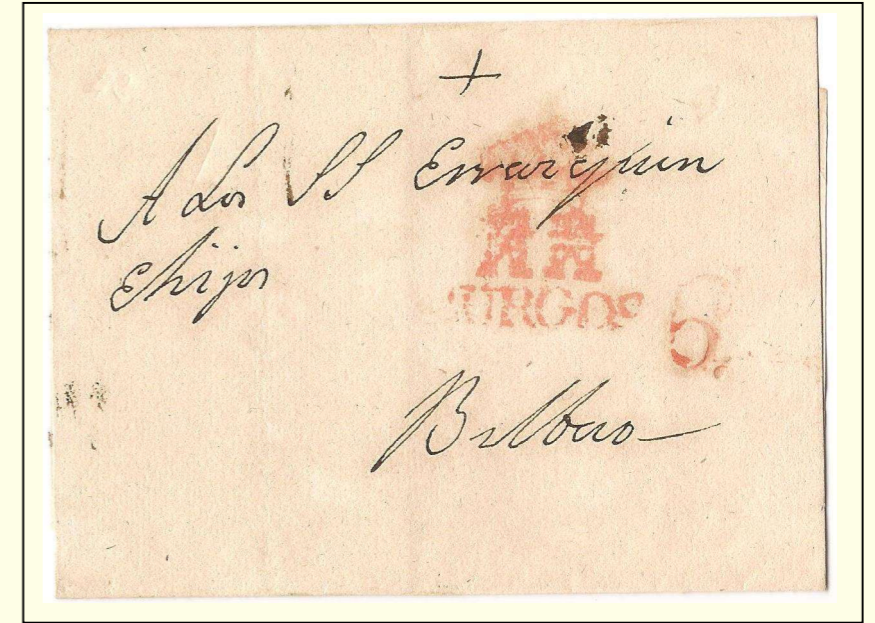 +
A Los SS Errarquin
E hijos
BURGOS
6
Bilbao